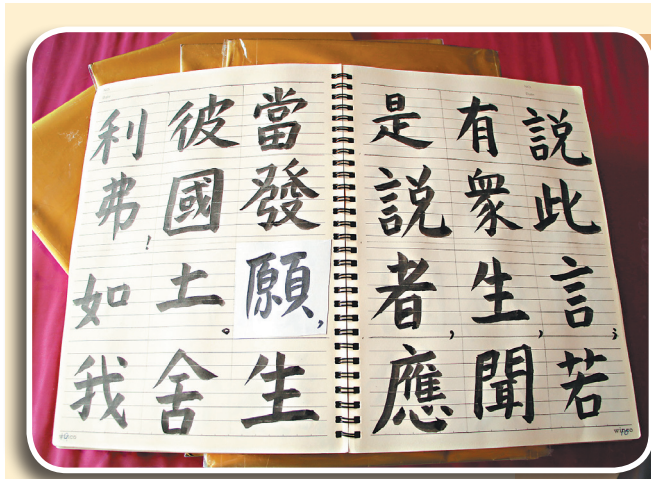 説此言；若
有衆生，聞
是説者，應
當發願，生
彼國土。舍
利弗！如我